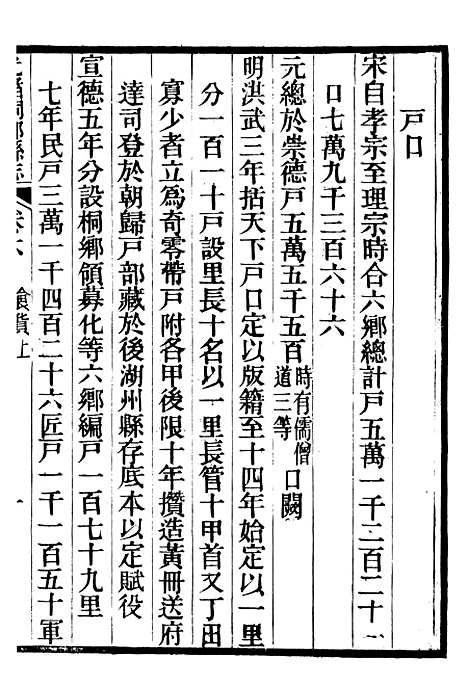 戸口
宋自孝宗至理宗時合六鄉總計戸五萬一千二百二十
口七萬九千三百六十六
元總於崇德戸五萬五千五百時有儒僧道三等口闕
明洪武三年括天下戸口定以版籍至十四年始定以一里
分一百一十戸設里長十名以一里長管十甲首又丁田
寡少者立爲奇零帶戸附各甲後限十年攢造黃冊送府
達司登於朝歸戸部藏於後湖州縣存底本以定賦役
宣德五年分設桐鄉領募化等六鄉編戸一百七十九里
七年民戸三萬一千四百二十六匠戸一千一百五十軍
桐鄉縣志 卷六 食貨上 一